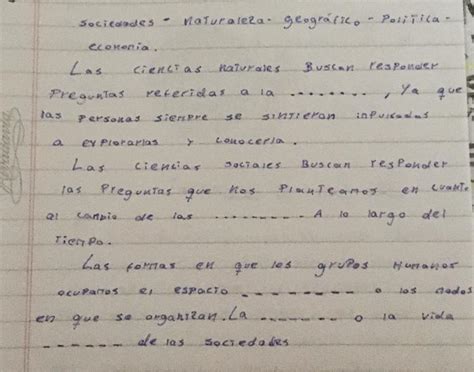 sociedades - naturaleza - geográfico - Política -
economía.
Las ciencias naturales Buscan responder
Preguntas referidas a la ........, Ya que
las Personas siempre se sintieron inpulsadas
a explorarlas y conocerla.
Las ciencias sociales Buscan responder
las Preguntas que nos Planteamos en cuanto
al cambio de las ---------- A lo largo del
Tiempo.
Las formas en que los grupos Humanos
ocupamos el espacio --------- o los modos
en que se organizan. La ------- o la vida
------ de las sociedades